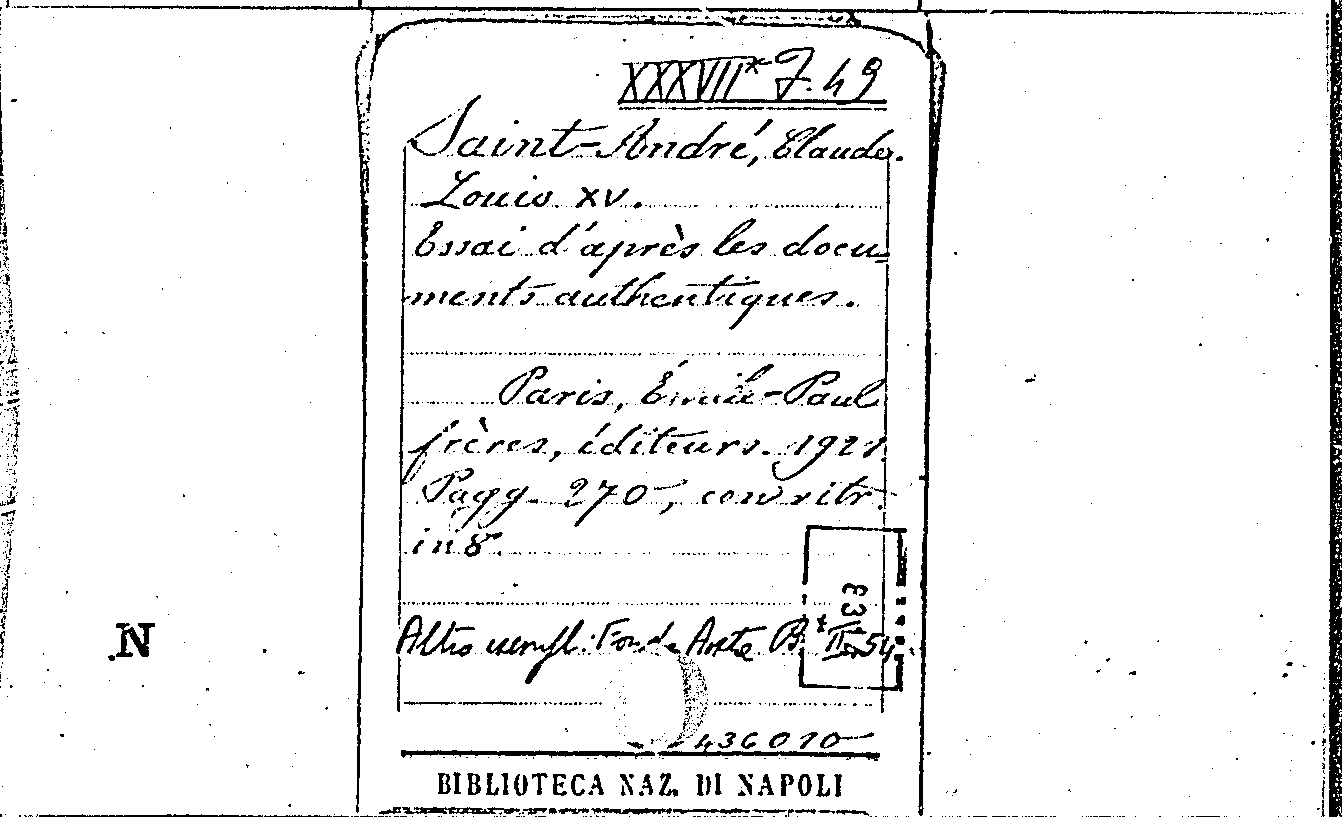 XXXVII* J. 49
Saint-André, Claude.
Louis XV.
Essai d'après les docu=
ments authentiques.
Paris, Émile-Paul
frères, éditeurs. 1921.
Pagg. 270, con ritr.
in 8°.
Altro esempl: Fondo Aosta B.* II 54
N
436010
BIBLIOTECA NAZ. DI NAPOLI